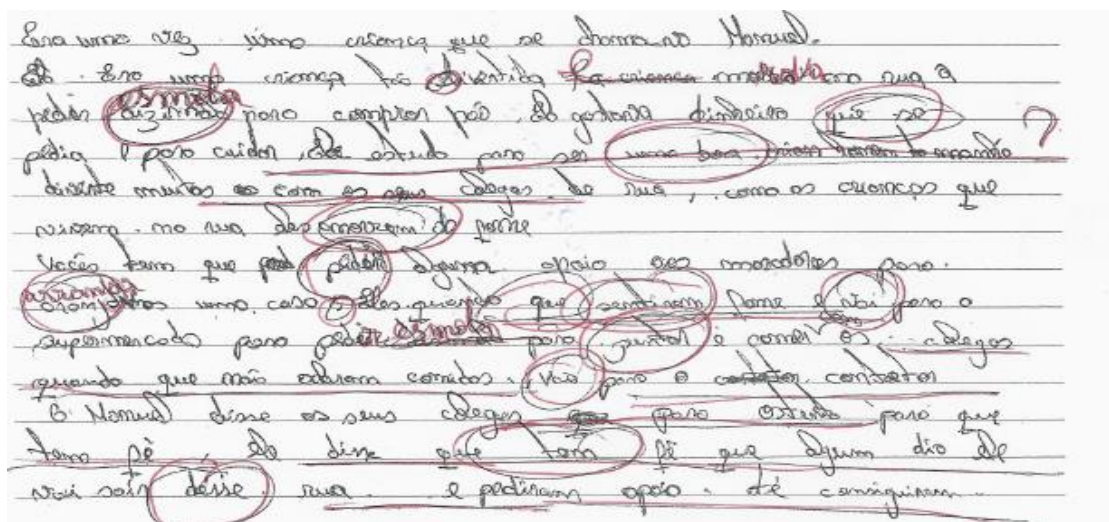 Era uma vez uma criança que se chamava Manuel.
Era uma criança tão divertida na rua a
pedir esmola para comprar pão. Ele gastava dinheiro que se ?
pedia e para cuidar, Ele estudo para ser uma boa
diverte muitos com os seus colegas de rua, como as crianças que
vivem na rua morrem de fome
Vocês tem que pedir alguma apoio aos moradores para.
arranjar uma casa Eles quando que sentiram fome e vai para o
supermercado para pedir esmola para juntar e comer os colegas
quando que não acharam comidas. Vão para o contentor
O Manuel disse os seus colegas para para que
tem fé, ele disse que tem fé que algum dia ele
vai sair desse rua e pediram apoio. até conseguiram.